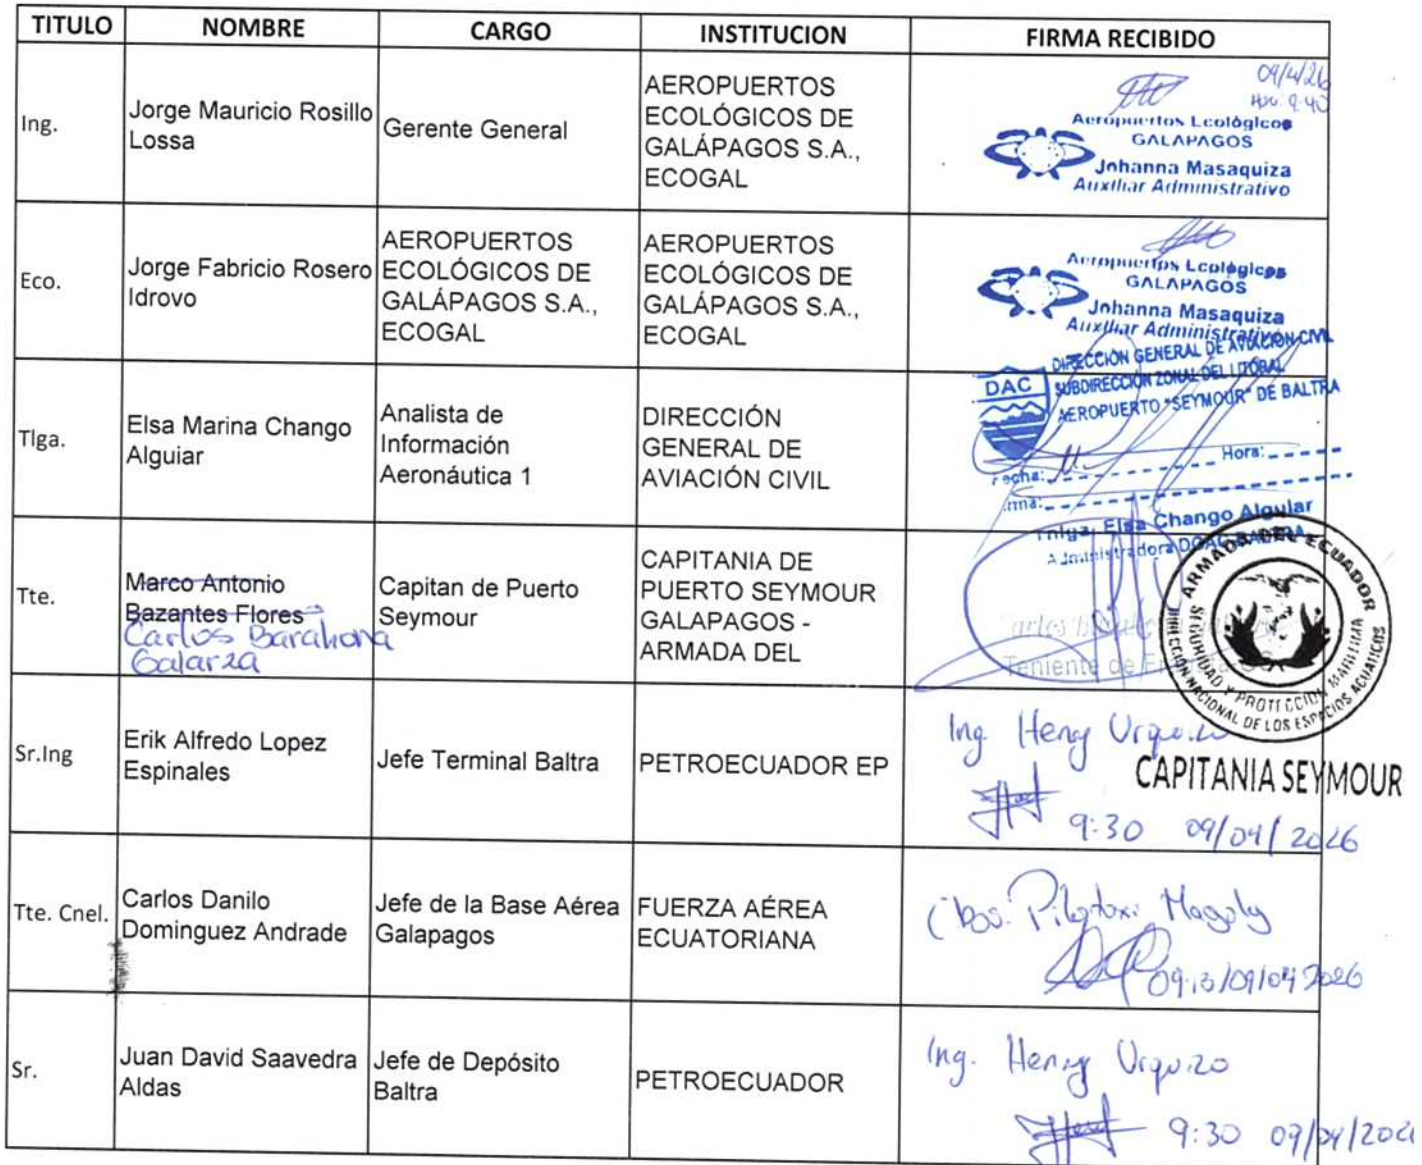 TITULO NOMBRE CARGO INSTITUCION FIRMA RECIBIDO
Ing.
Jorge Mauricio Rosillo
Lossa
Gerente General
AEROPUERTOS
ECOLÓGICOS DE
GALÁPAGOS S.A.,
ECOGAL
09/4/26
9:40
Aeropuertos Ecológicos
GALAPAGOS
Johanna Masaquiza
Auxiliar Administrativo
Eco.
Jorge Fabricio Rosero
Idrovo
AEROPUERTOS
ECOLÓGICOS DE
GALÁPAGOS S.A.,
ECOGAL
AEROPUERTOS
ECOLÓGICOS DE
GALÁPAGOS S.A.,
ECOGAL
Aeropuertos Ecológicos
GALAPAGOS
Johanna Masaquiza
Auxiliar Administrativo
Tlga.
Elsa Marina Chango
Alguiar
Analista de
Información
Aeronáutica 1
DIRECCIÓN
GENERAL DE
AVIACIÓN CIVIL
DAC
DIRECCIÓN GENERAL DE AVIACIÓN CIVIL
SUBDIRECCIÓN ZONAL DEL LITORAL
AEROPUERTO "SEYMOUR" DE BALTRA
Fecha: Hora:
Elsa Chango Alguiar
Administradora DGAC-BALTRA
Tte.
Marco Antonio
Bazantes Flores
Carlos Barahona
Galarza
Capitan de Puerto
Seymour
CAPITANIA DE
PUERTO SEYMOUR
GALAPAGOS -
ARMADA DEL
Carlos
Teniente de
ARMADA DEL ECUADOR
DIRECCIÓN NACIONAL DE LOS ESPACIOS ACUATICOS
SEGURIDAD Y PROTECCION MARITIMA
CAPITANIA SEYMOUR
Sr.Ing
Erik Alfredo Lopez
Espinales
Jefe Terminal Baltra
PETROECUADOR EP
Ing. Henry Urquizo
9:30 09/04/2026
Tte. Cnel.
Carlos Danilo
Dominguez Andrade
Jefe de la Base Aérea
Galapagos
FUERZA AÉREA
ECUATORIANA
Cbos. Pilatoxi Magaly
09:13/09/04 2026
Sr.
Juan David Saavedra
Aldas
Jefe de Depósito
Baltra
PETROECUADOR
Ing. Henry Urquizo
9:30 09/04/202